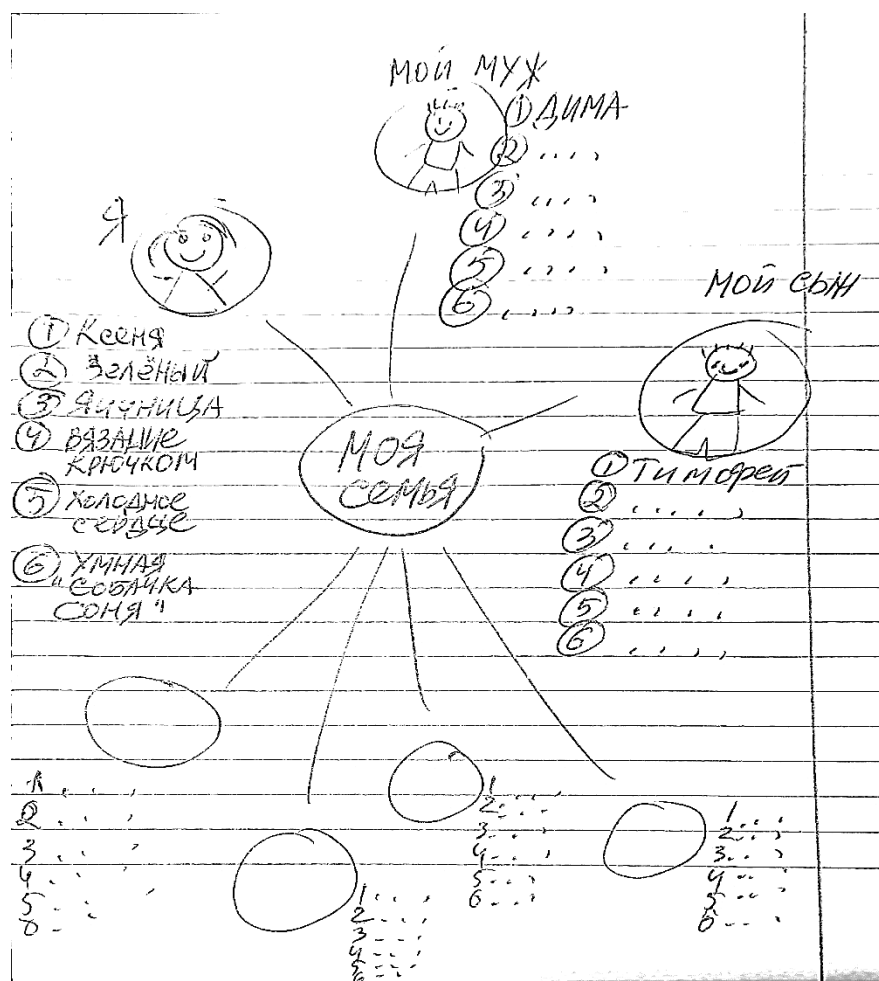 МОЙ МУЖ
① ДИМА
② ....
③ ....
④ ....
⑤ ....
⑥ ....
Я
① Ксеня
② Зелёный
③ ЯИЧНИЦА
④ ВЯЗАНИЕ
КРЮЧКОМ
⑤ ХОЛОДНОЕ
СЕРДЦЕ
⑥ УМНАЯ
"СОБАЧКА
СОНЯ"
МОЙ СЫН
① Тимофей
② .....
③ ....
④ ....
⑤ ....
⑥ ....
МОЯ
СЕМЬЯ
1 ....
2 ...
3 ...
4 ...
5 ...
6 ..
1 ...
2 ...
3 ...
4 ...
5 ...
6 ...
1 ...
2 ...
3 ...
4 ...
5 ...
6 ...
1 ...
2 ...
3 ...
4 ...
5 ...
6 ...